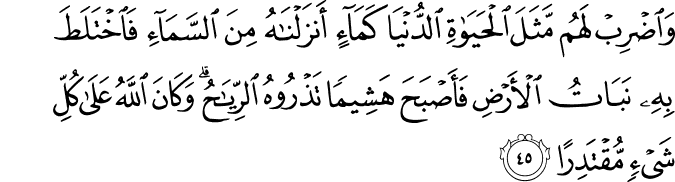 وَٱضۡرِبۡ لَهُم مَّثَلَ ٱلۡحَيَوٰةِ ٱلدُّنۡيَا كَمَآءٍ أَنزَلۡنَٰهُ مِنَ ٱلسَّمَآءِ فَٱخۡتَلَطَ
بِهِۦ نَبَاتُ ٱلۡأَرۡضِ فَأَصۡبَحَ هَشِيمٗا تَذۡرُوهُ ٱلرِّيَٰحُۗ وَكَانَ ٱللَّهُ عَلَىٰ كُلِّ
شَيۡءٖ مُّقۡتَدِرًا ٤٥